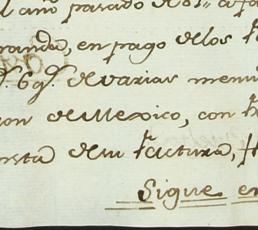 l año pasado de 801 á fa
randa, en pago de los
6 q.s de varias menu
ion de Mexico, con
nsta de su Factura,
Sigue en